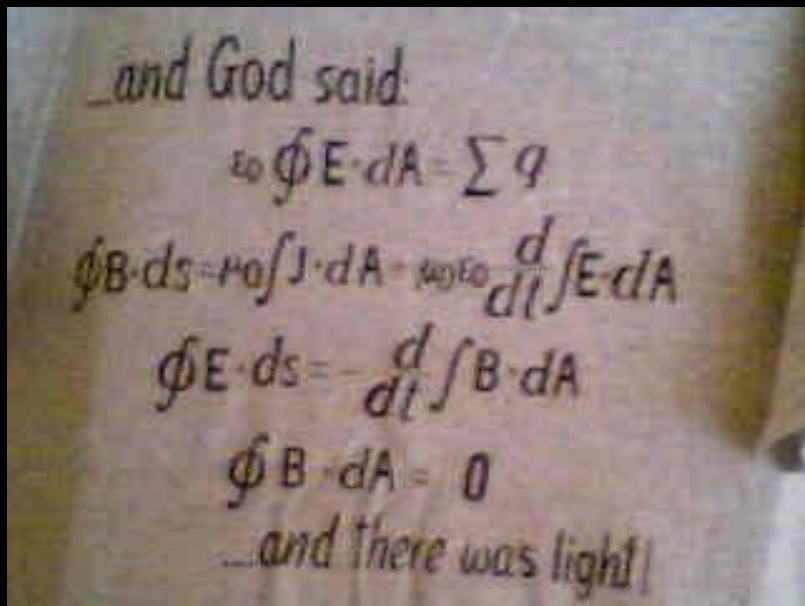 ...and God said:
ε0 ∮E·dA = ∑q
∮B·ds = μ0∫J·dA - μ0ε0 d/dt ∫E·dA
∮E·ds = - d/dt ∫B·dA
∮B·dA = 0
...and there was light!